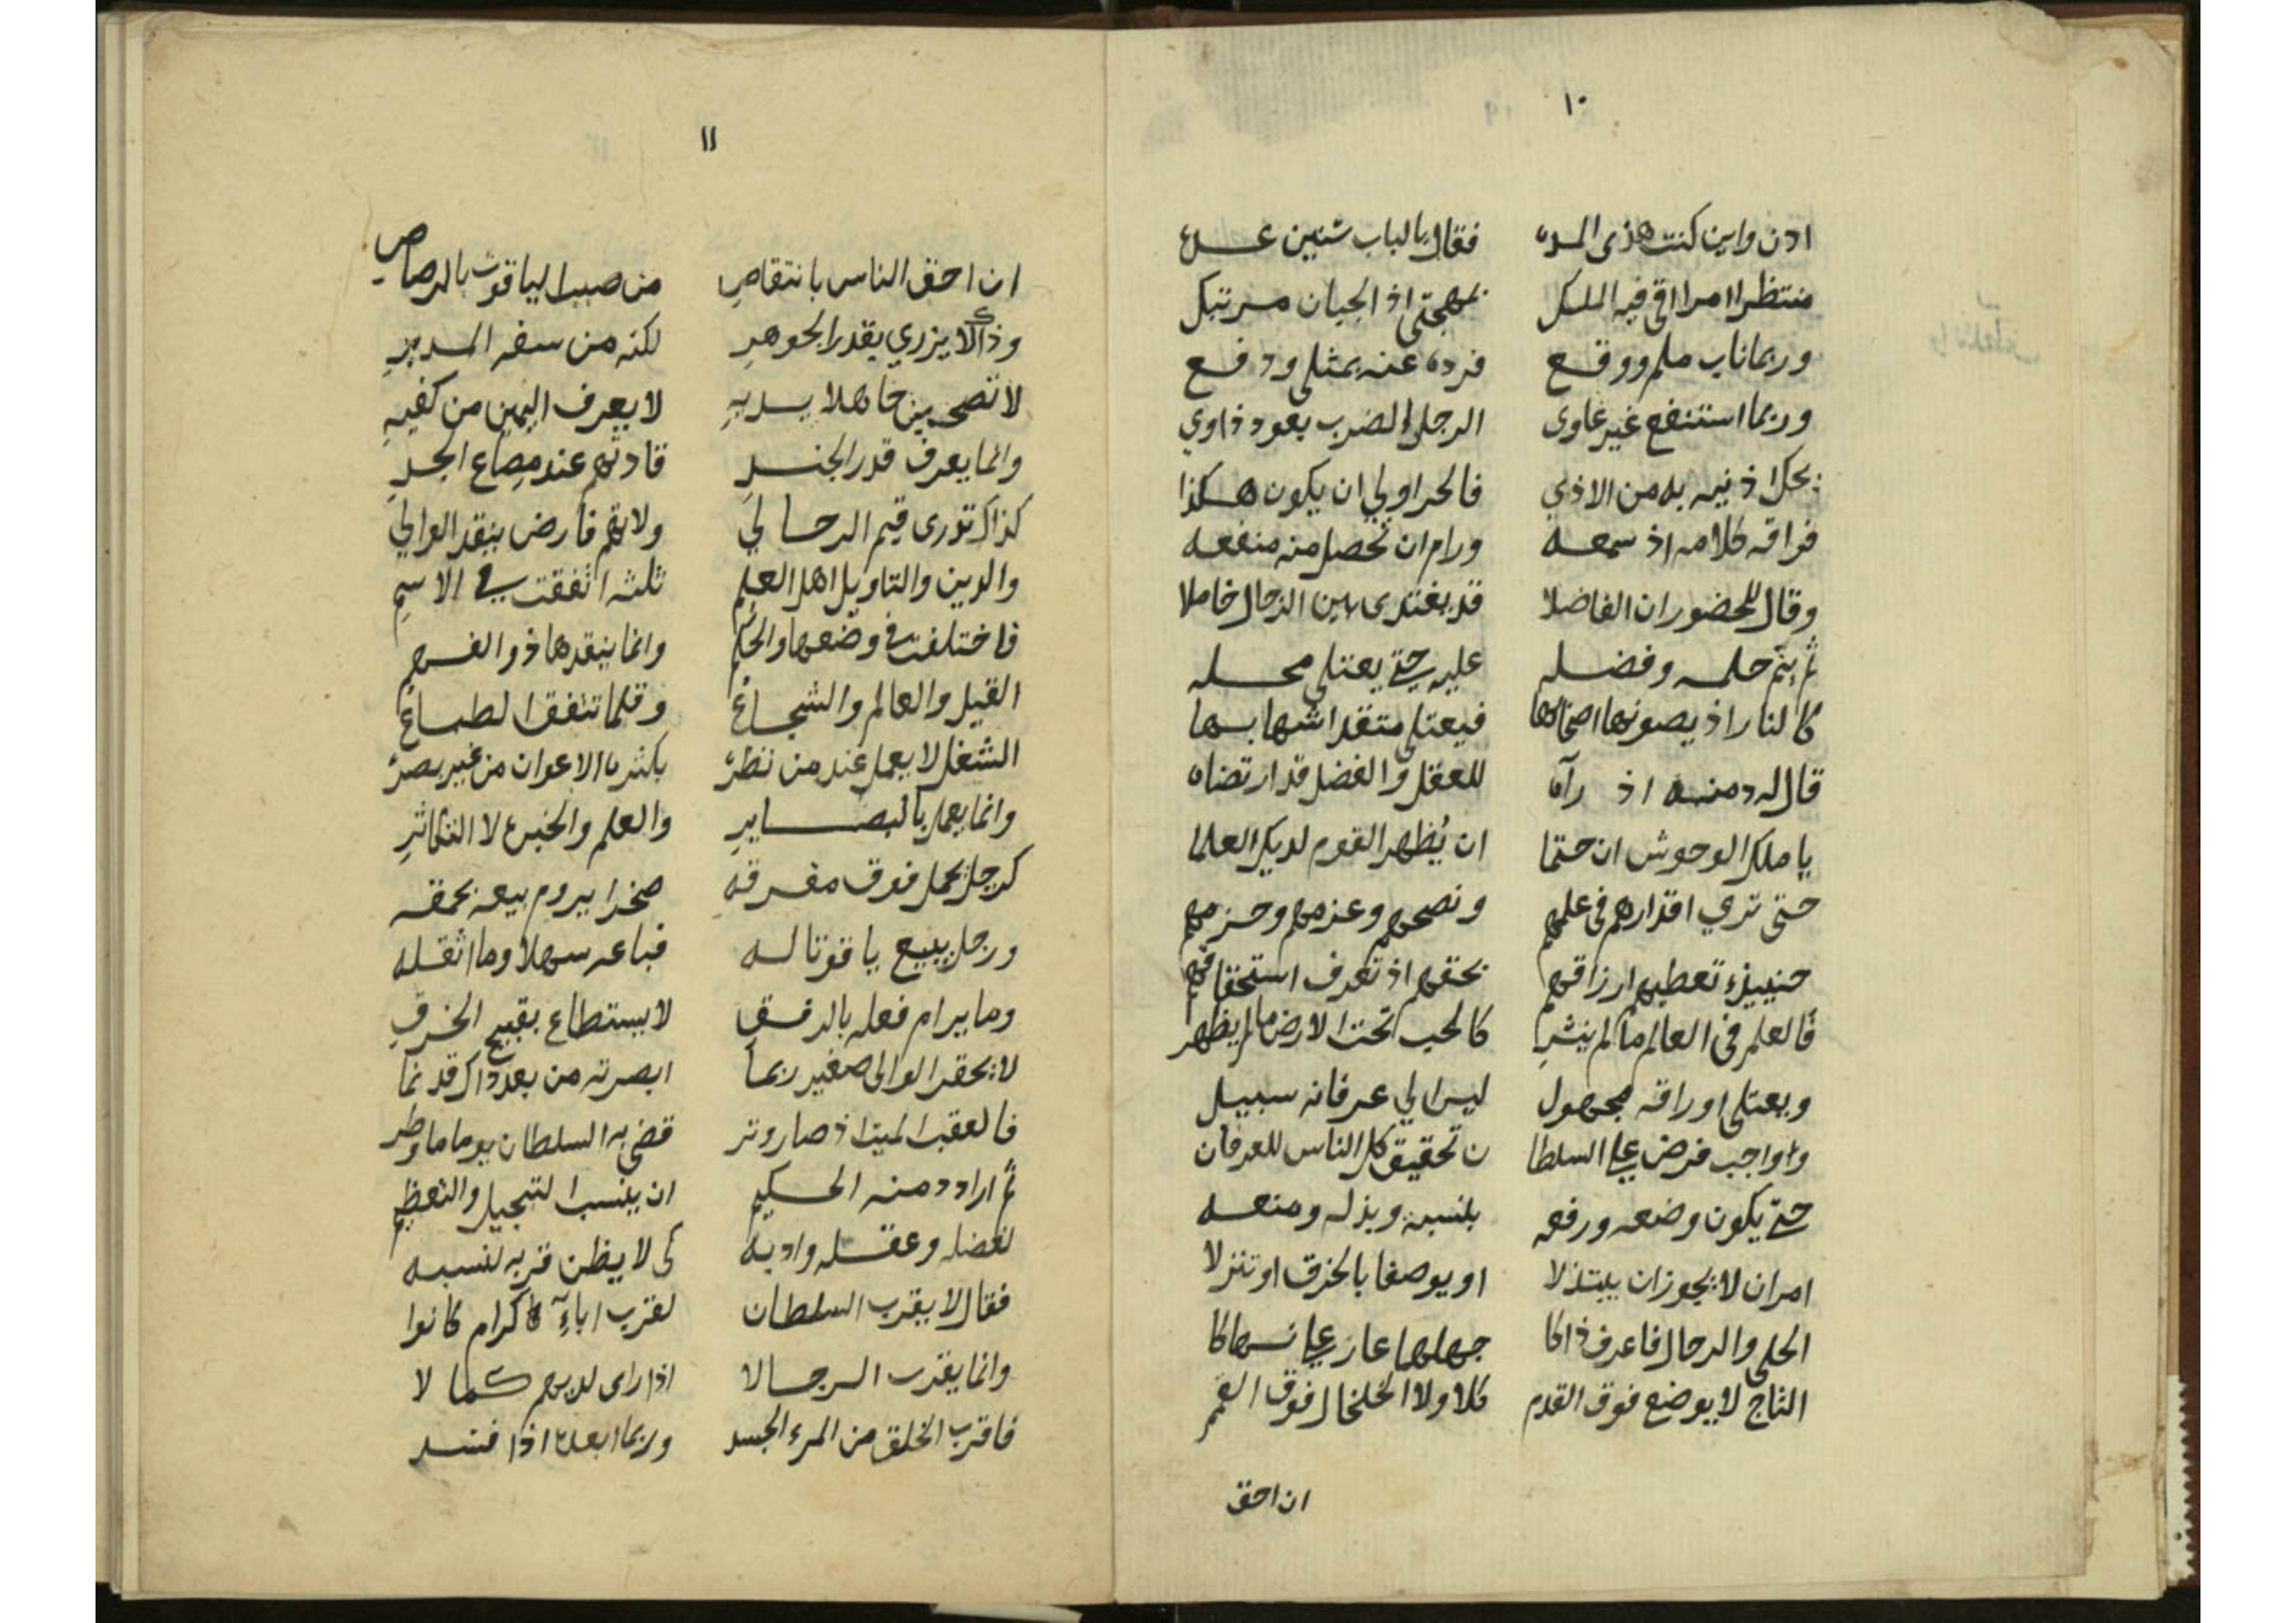 ١٠
ادن واين كنت هذى المده فقال بالباب شتين عده
منتظرا امرا اقى فيه الملك بمهجتى اذ الجبان مرتبك
وربما ناب ملم ووقع فرده عنه بمثلى ودفع
وربما استنفع غير غاوى الرجل الضرب بعود ذاوي
بحك اذنيه به من الاذي فالحر اولي ان يكون هكذا
فراقه كلامه اذ سمعه ورام ان تحصل منه منفعه
وقال للحضور ان الفاضلا قد يغتدى بين الرجال خاملا
ثم ينم حلمه وفضله عليه حتى يعتلى محله
كالنار اذ يصونها اصحابها فيعتلى متقدا شهابها
قال له دمنه اذ رآه للعقل والفضل قد ارتضاه
يا ملك الوحوش ان حتما ان يُظهر القوم لديك العلما
حتى تري اقدارهم فى علمهم ونصحهم وعزمهم وحزمهم
حينيذٍ تعطيهم ارزاقهم بحقهم اذ تعرف استحقاقهم
فالعلم فى العالم ما لم ينشرِ كالحب تحت الارض ما لم يظهر
وبعتلى اوراقه مجهول ليس الي عرفانه سبيل
وواجب فرض على السلطا ن تحقيق كل الناس للعرفان
حتى يكون وضعه ورفعه بنسبة وبذله ومنعه
امران لا يجوز ان يبتذلا او يوصفا بالخرق او تنزلا
الحلى والرجال فاعرف ذاكا جهلهما عار على نهاكا
التاج لا يوضع فوق القدم كلا ولا الخلخال فوق القمم
ان احق
١١
ان احق الناس بانتقاصِ من صبب الياقوت بالرصاصِ
وذاك لا يزري بقدر الجوهرِ لكنه من سفه المدبرِ
لا تصحبين جاهلا بديهِ لا يعرف اليمين من كفيهِ
وانما يعرف قدر الجندِ قادتهم عند مصاع الجدِ
كذاك تورى قيم الرجالي ولاتهم فارض بنقد الوالي
والدين والتاويل اهل العلمِ ثلثه اتفقت في الاسمِ
فاختلفت في وضعها والحكم وانما ينقدها ذو الفهم
القيل والعالم والشجاعُ وقلما تتفق الطباعُ
الشغل لا يعمل عند من نظرْ بكثرة الاعوان من غير بصرْ
وانما يعمل بالبصايرِ والعلم والخبرة لا التكاثرِ
كرجل يحمل فوق مفرقهِ صخرا يروم بيعه بحمقه
ورجل يبيع ياقوتا له فباعه سهلا وما اثقله
وما يرام فعله بالرفقِ لا يستطاع بقبيح الخرقِ
لا يحقر الوالى صغير ربما ابصرته من بعد ذاك قد نما
فالعقب الميت اذ صار وتر قضى به السلطان يوما ما وطر
ثم اراد دمنه الحكيم ان ينسب التبجيل والتعظيم
لفضله وعقله وادبه كى لا يظن قربه لنسبه
فقال لا يقرب السلطان لقرب اباءٍ كرام كانوا
وانما يقرب الرجالا اذا راى لديهم كمالا
فاقرب الخلق من المرء الجسد وربما ابعده اذا فسد